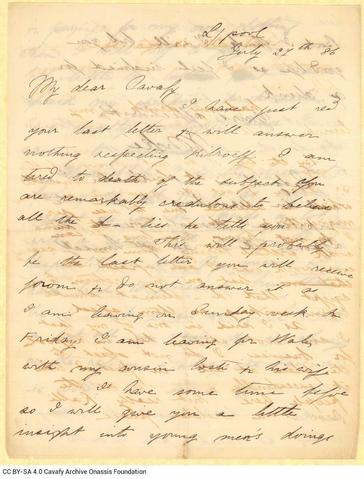 L/pool
July 29th 86
My dear Cavafy
I have just recd
your last letter & will answer
nothing respecting I am
tired to death of the subject you
are remarkably credulous to believe
all the d— lies he tells you
This will probably
be the last letter you will receive
from & do not answer it as
I am leaving on Sunday week
Friday I am leaving for Wales
with my cousin & his wife
I have some time before
so I will give you a little
insight into young men's doings
CC BY-SA 4.0 Cavafy Archive Onassis Foundation